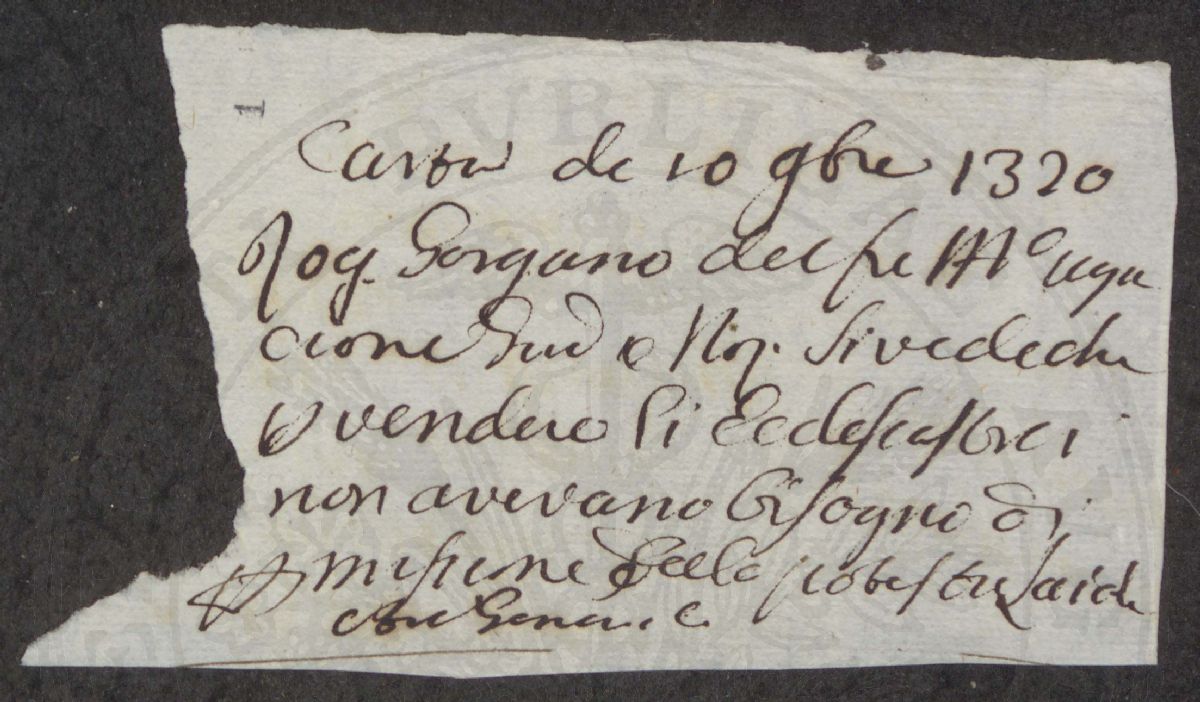 1
Carta de 10 9bre 1320
Rog. Gorgano del fu Mo uga
cione Giud e Not. Si vede che
p vendere li Ecclesiastici
non avevano bisogno di
missione della potestà Laica